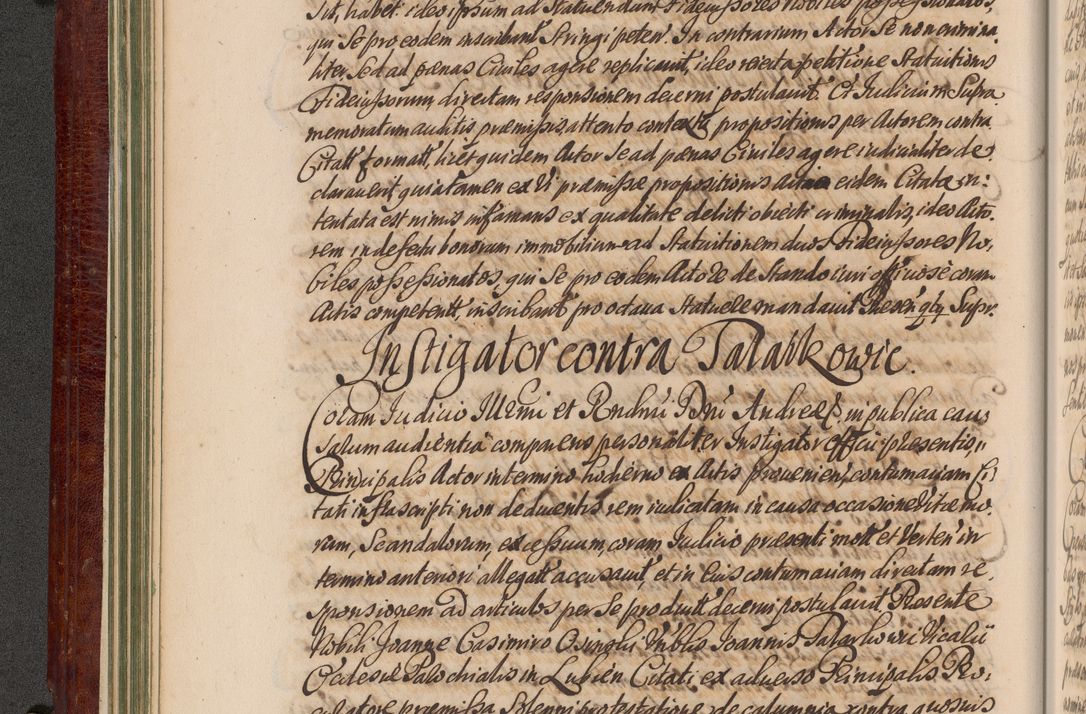 sit, habet. ideo ipsum ad Statuendam Fideiussores nobiles possessionatos,
qui Se pro eodem inscribant Stringi peten̄. In contrarium Actor Se non crimina
liter Sed ad pœnas Civiles agere replicavit, ideo reiecta petitione Statuitionis
Fideiussorum, directam responsionem decerni postulavit. Et Iudicium Supra
memoratum auditis præmissis, attento contextu propositionis per Actorem contra
Citatt formatt, licet quidem Actor Se ad pœnas Civiles agere iudicialiter de
claraverit, quia tamen ex Vi præmissæ propositionis Actio eidem Citato in:
tentata est nimis infamans ex qualitate delicti obiecti criminalis, ideo Acto
rem in defectu bonorum immobilium ad Statuitionem duos Fideiussores No
biles possessionatos, qui Se pro eodem Actore de Stando iuri officiose coram
Actis competentt, inscribant pro octava Statuere mandavit Præsen̄ qbq Supr.
Instigator contra Talarkowic.
Coram Iudicio Illrmi et Rndmi Dni Andreæ &, in publica cau
sarum audientia comparens personaliter Instigator officii præsentis, n
Principalis Actor in termino hodierno ex Actis provenien̄, contumaciam Ci
tati infrascripti non deducentis rem iudicatam in causa occasione Vitæ mo
rum, Scandalorum, excessuum, coram Iudicio præsenti mott et Verten̄ in
termino anteriori allegatt accusavit et in Eius contumaciam directam re
sponsionem ad articulos per Se produtt decerni postulavit. Præsente
Nobili Joanne Casimiro Osinski Vnblis Joannis Talarkowi Vicarii
Ecclesiæ Parochialis in Lubień Citati ex adverso Principalis Pro
curatore præmissa Solenni protestatione de calumnia contra quosvis